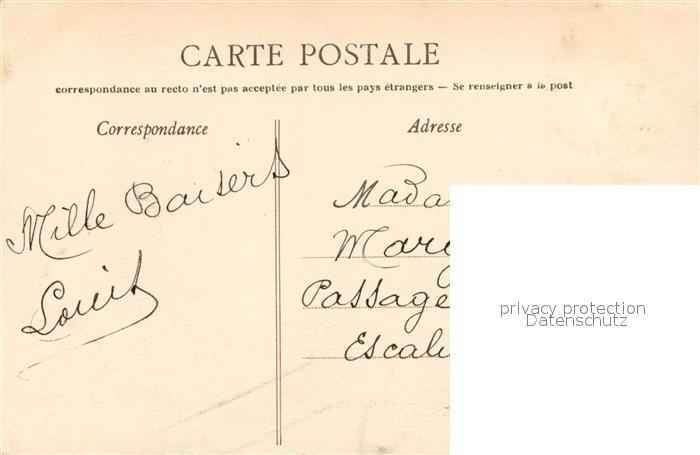 CARTE POSTALE
correspondance au recto n'est pas acceptée par tous les pays étrangers — Se renseigner à la post
Correspondance
Adresse
Mille Baisers
Louis
Mada
Marg
Passage
Escali
privacy protection
Datenschutz